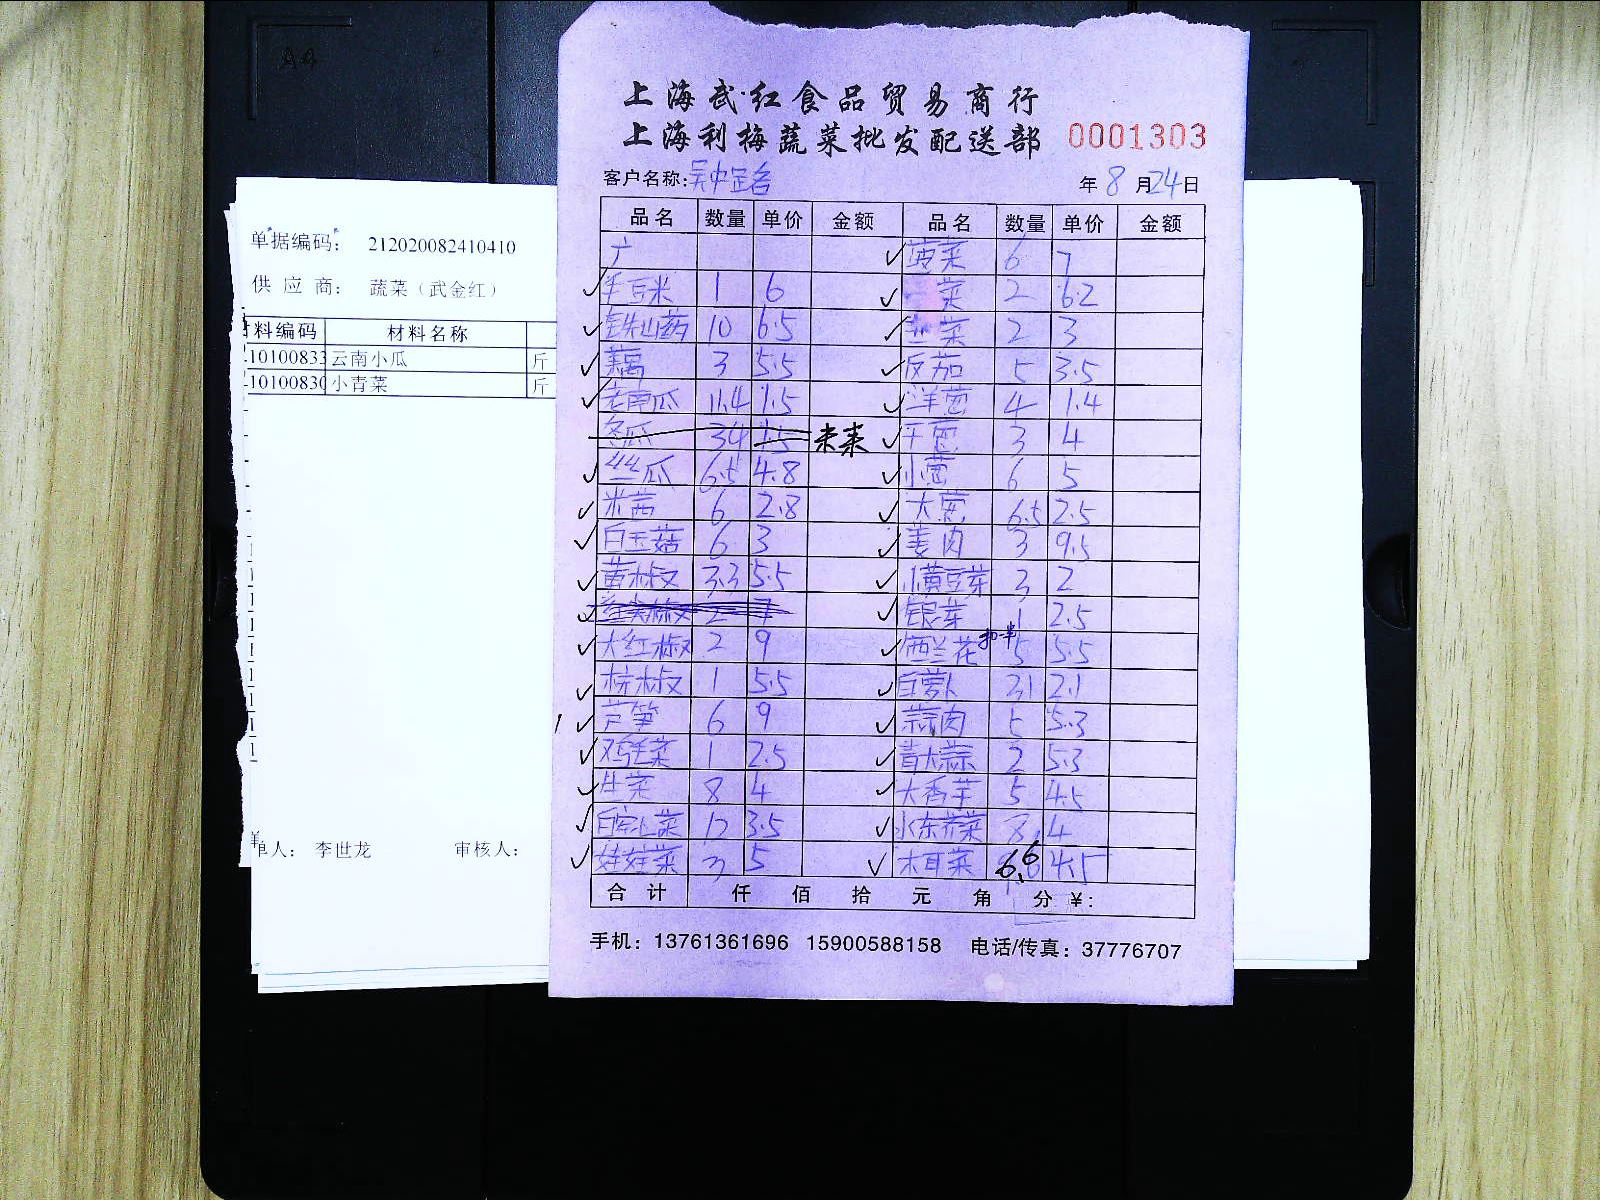 上海武红食品贸易商行
上海利梅蔬菜批发配送部 0001303
客户名称: 年 8 月 24 日
品名 数量 单价 金额 品名 数量 单价 金额
菠菜 6 7
毛豆米 1 6 菜 2 6.2
铁山药 10 6.5 韭菜 2 3
藕 3 5.5 反茄 5 3.5
老南瓜 11.4 1.5 洋葱 4 1.4
冬瓜 34 1.5 未来 干葱 3 4
丝瓜 6.5 4.8 小葱 6 5
米茜 6 2.8 大葱 6.5 2.5
白玉菇 6 3 姜肉 3 9.5
黄椒 3.3 5.5 小黄豆芽 3 2
红尖椒 2 7 银芽 1 2.5
大红椒 2 9 西兰花 扣半 5 5.5
杭椒 1 5.5 白萝卜 31 2.1
芦笋 6 9 蒜肉 5 5.3
鸡毛菜 1 2.5 青大蒜 2 5.3
生菜 8 4 大香芋 5 4.5
菜 12 3.5 水东芥菜 8 4
娃娃菜 3 5 木耳菜 6.6 4.5
合计 仟 佰 拾 元 角 分 ¥:
手机: 13761361696 15900588158 电话/传真: 37776707
单据编码: 212020082410410
供应商: 蔬菜（武金红）
料编码 材料名称
10100833 云南小瓜 斤
10100830 小青菜 斤
单人: 李世龙 审核人: